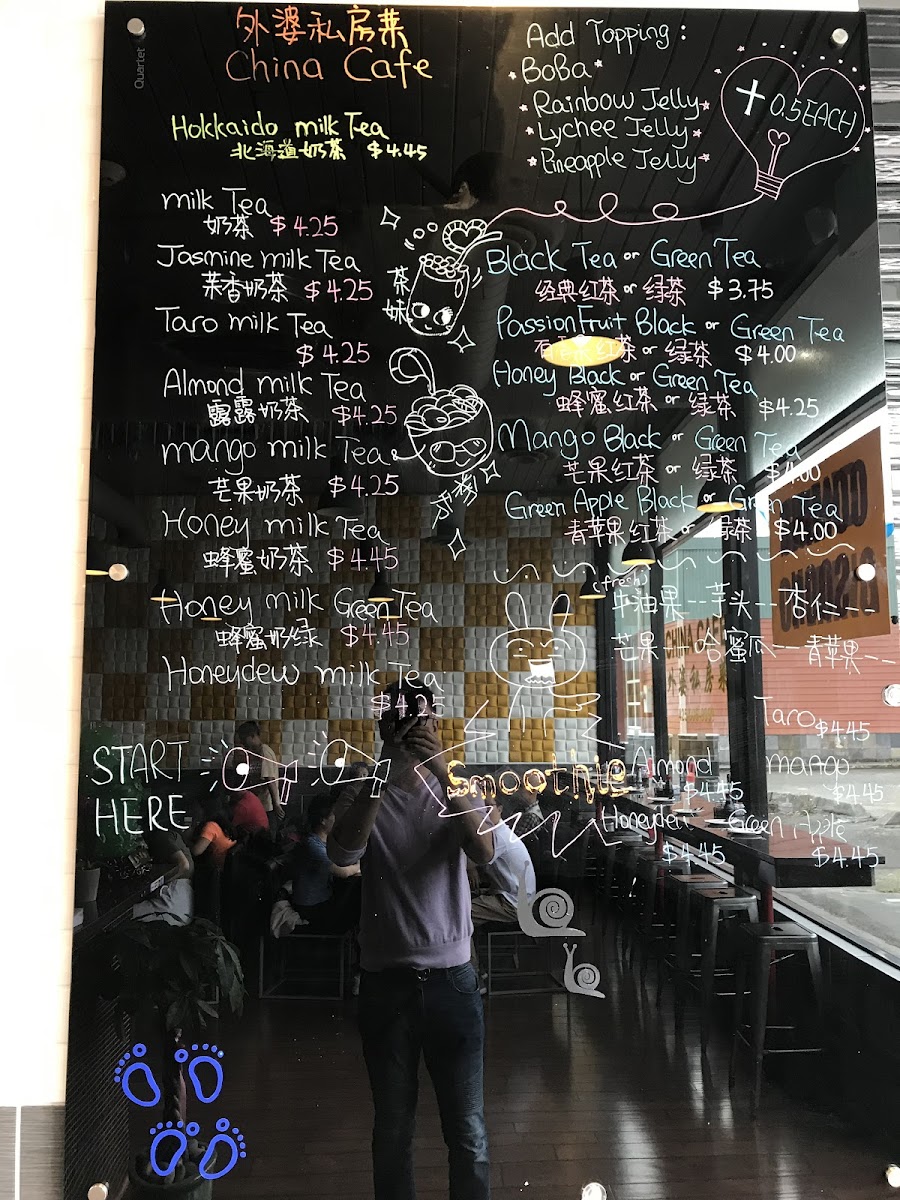 Quartet
外婆私房菜
China Cafe
Hokkaido milk Tea
北海道奶茶 $4.45
milk Tea
奶茶 $4.25
Jasmine milk Tea
茉香奶茶 $4.25
Taro milk Tea
$4.25
Almond milk Tea
露露奶茶 $4.25
mango milk Tea
芒果奶茶 $4.25
Honey milk Tea
蜂蜜奶茶 $4.45
Honey milk Green Tea
蜂蜜奶绿 $4.45
Honeydew milk Tea
$4.25
START
HERE
茶
妹
Add Topping:
BoBa
Rainbow Jelly
Lychee Jelly
Pineapple Jelly
+0.5 EACH
Black Tea or Green Tea
经典红茶 or 绿茶 $3.75
PassionFruit Black or Green Tea
红茶 or 绿茶 $4.00
Honey Black or Green Tea
蜂蜜红茶 or 绿茶 $4.25
Mango Black or Green Tea
芒果红茶 or 绿茶 $4.00
Green Apple Black or Green Tea
青苹果红茶 or 绿茶 $4.00
(fresh)
牛油果--芋头--杏仁--
芒果--哈蜜瓜--青苹果--
Smoothie
Taro $4.45
Almond $4.45
mango $4.45
Honeydew $4.45
Green Apple $4.45
CHINA CAFE